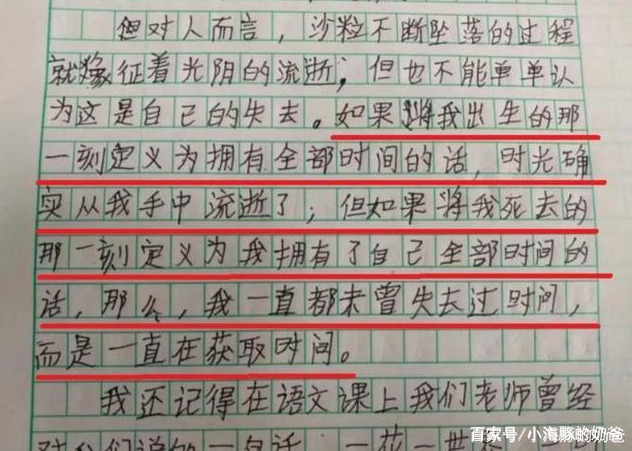 但对人而言，沙粒不断坠落的过程
就像征着光阴的流逝；但也不能单单认
为这是自己的失去。如果将我出生的那
一刻定义为拥有全部时间的话，时光确
实从我手中流逝了；但如果将我死去的
那一刻定义为我拥有了自己全部时间的
话，那么，我一直都未曾失去过时间，
而是一直在获取时间。
我还记得在语文课上我们老师曾经
对我们说的一句话：一花一世
百家号/小海豚的奶爸